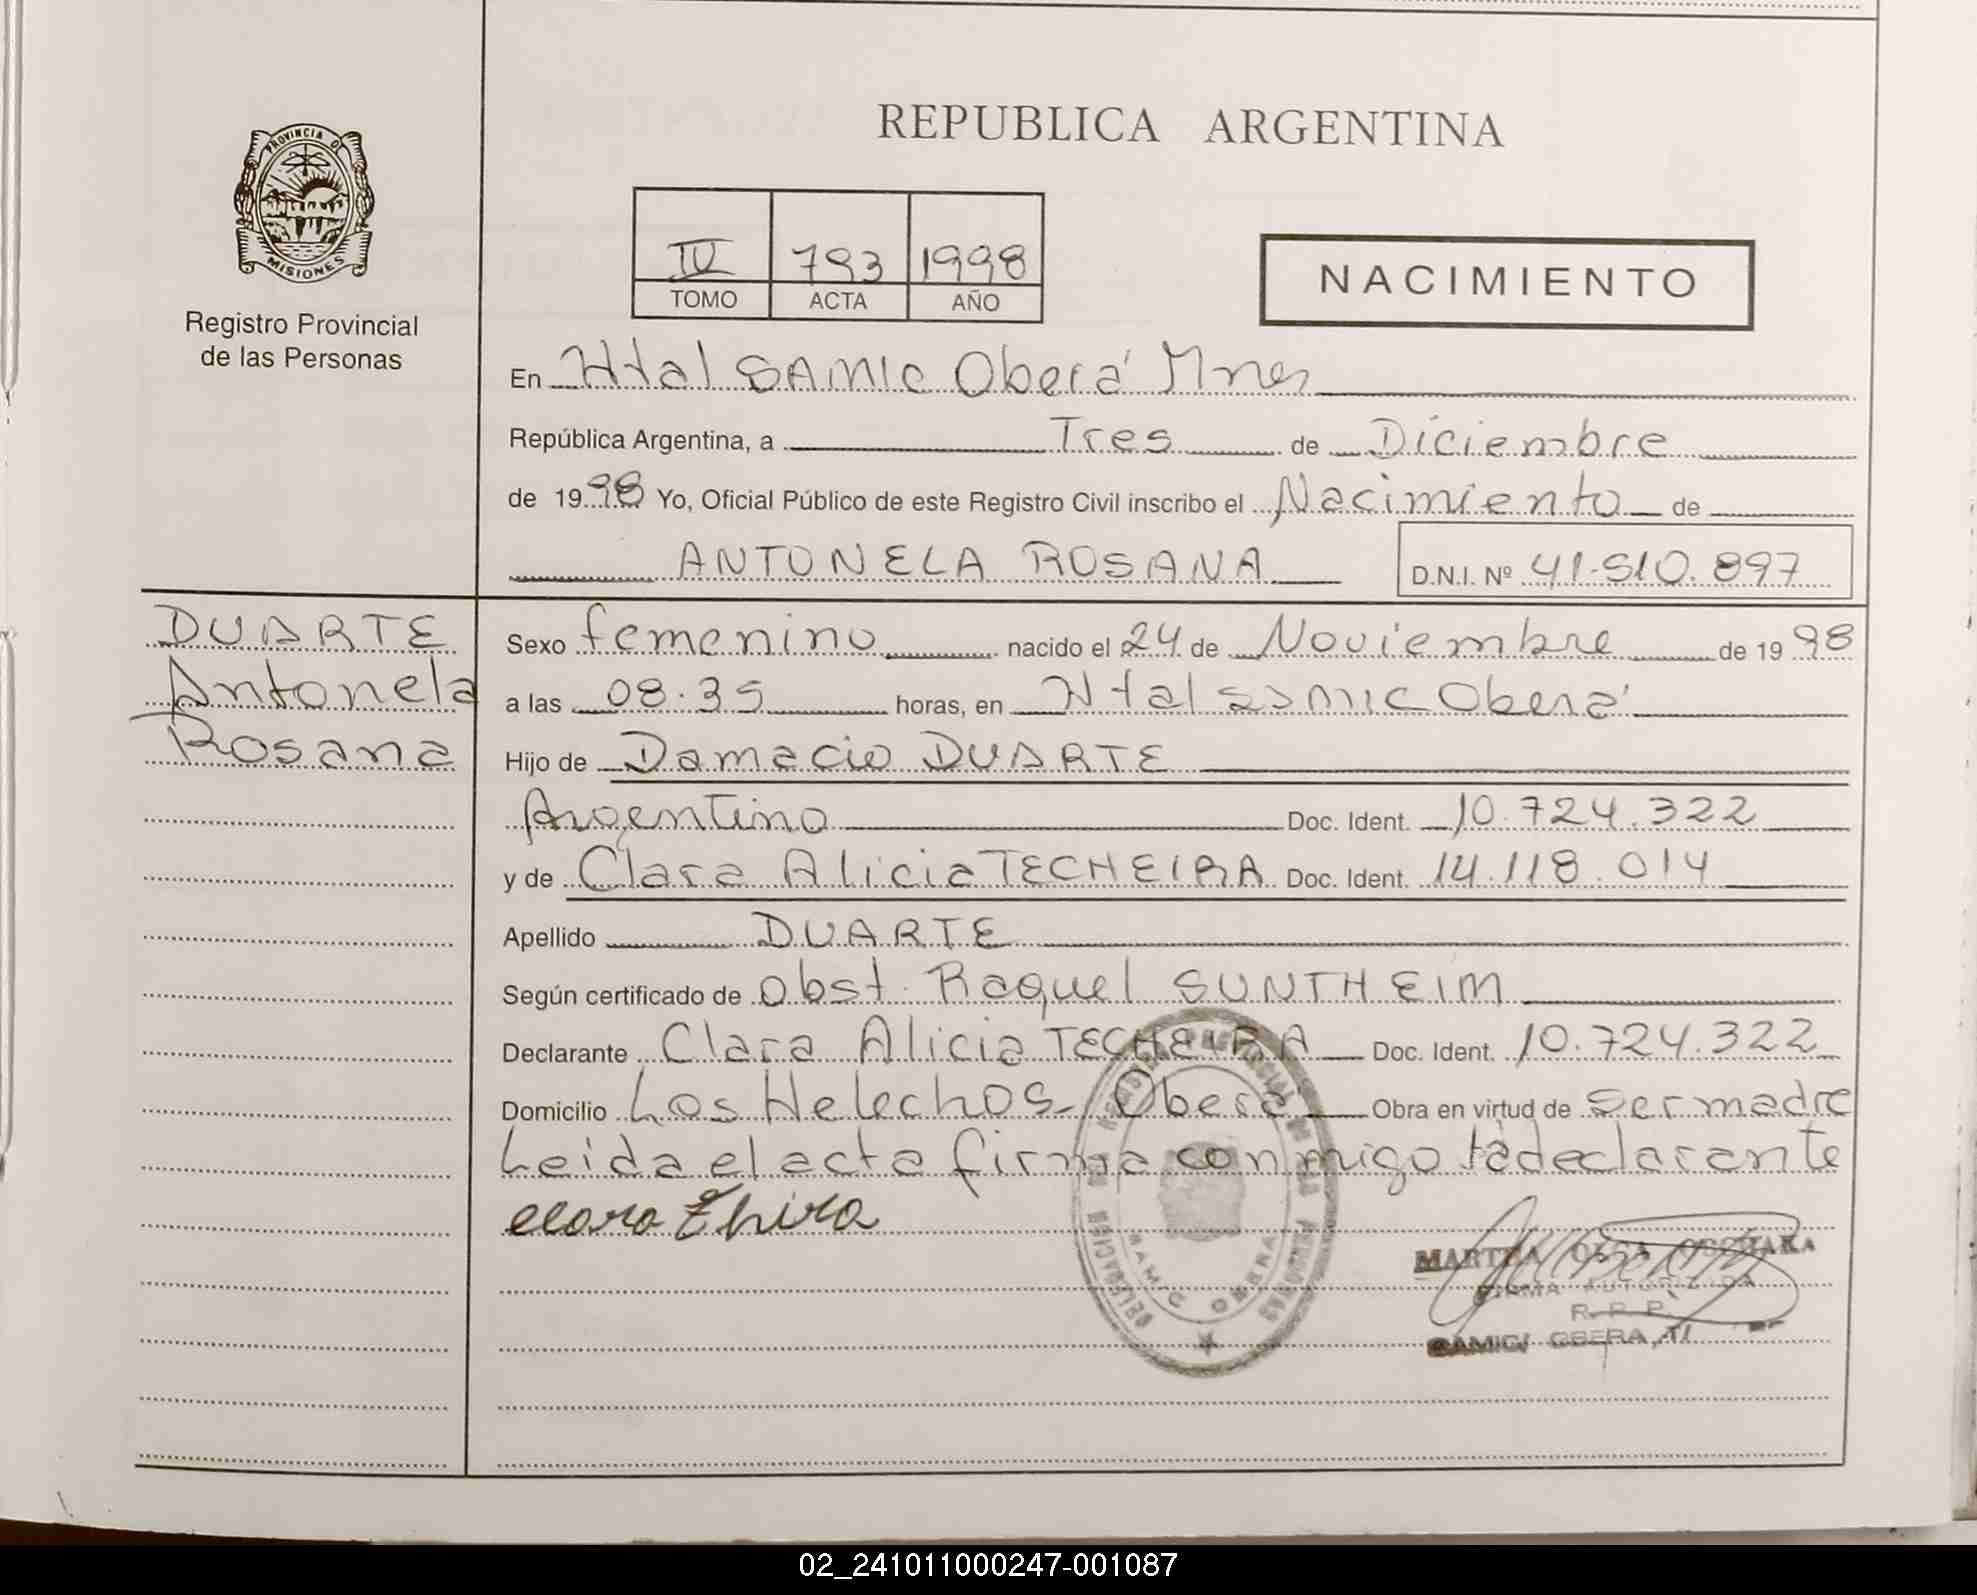 PROVINCIA DE
MISIONES
Registro Provincial
de las Personas
REPUBLICA ARGENTINA
IV 793 1998
TOMO ACTA AÑO
NACIMIENTO
En Htal SAMIC Oberá Mnes
República Argentina, a Tres de Diciembre
de 1998 Yo, Oficial Público de este Registro Civil inscribo el Nacimiento de
ANTONELA ROSANA D.N.I. Nº 41.510.897
DUARTE
Antonela
Rosana
Sexo femenino nacido el 24 de Noviembre de 1998
a las 08:35 horas, en Htal SAMIC Oberá
Hijo de Damacio DUARTE
Argentino Doc. Ident. 10.724.322
y de Clara Alicia TECHEIRA Doc. Ident. 14.118.014
Apellido DUARTE
Según certificado de Obst. Raquel SUNTHEIM
Declarante Clara Alicia TECHEIRA Doc. Ident. 10.724.322
Domicilio Los Helechos - Oberá Obra en virtud de Ser madre
Leída el acta firma conmigo la declarante
MARTHA OLGA
FIRMA AUTORIZADA
R. P. P.
SAMIC OBERA
SAMIC OBERA
02_241011000247-001087